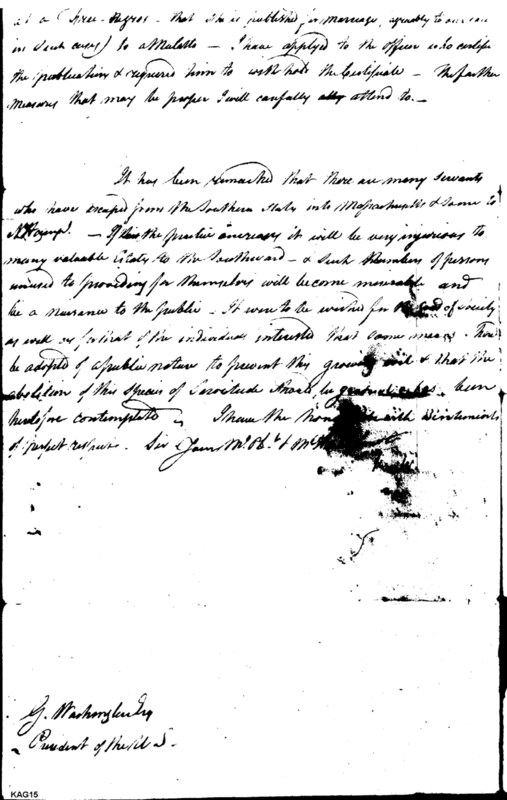 of a free-Negroe - that she is published for marriage, agreably to our law
in such cases) to a Mulatto - I have applyed to the Officer who certifies
the publication & required him to with hold the Certificate - The farther
measures that may be proper I will carefully attend to. -
It has been remarked that there are many Servants
who have escaped from the Southern States into Massachusetts & some to
N Hamp. - If the practice increases it will be very injurious to
many valuable to the Southward - & such Numbers of persons
unused to providing for themselves will become miserable and
be a nuisance to the public - It were to be wished for the good of Society
as well as for that of the individuals interested that some means
be adopted of a public nature to prevent this growing evil & that the
abolition of this Species of Servitude should be gradual as has been
heretofore contemplated - I have the hono with Sentiments
of perfect respect. Sir Your Mo. Ob. &
G. Washington Esq
President of the U S -
KAG15